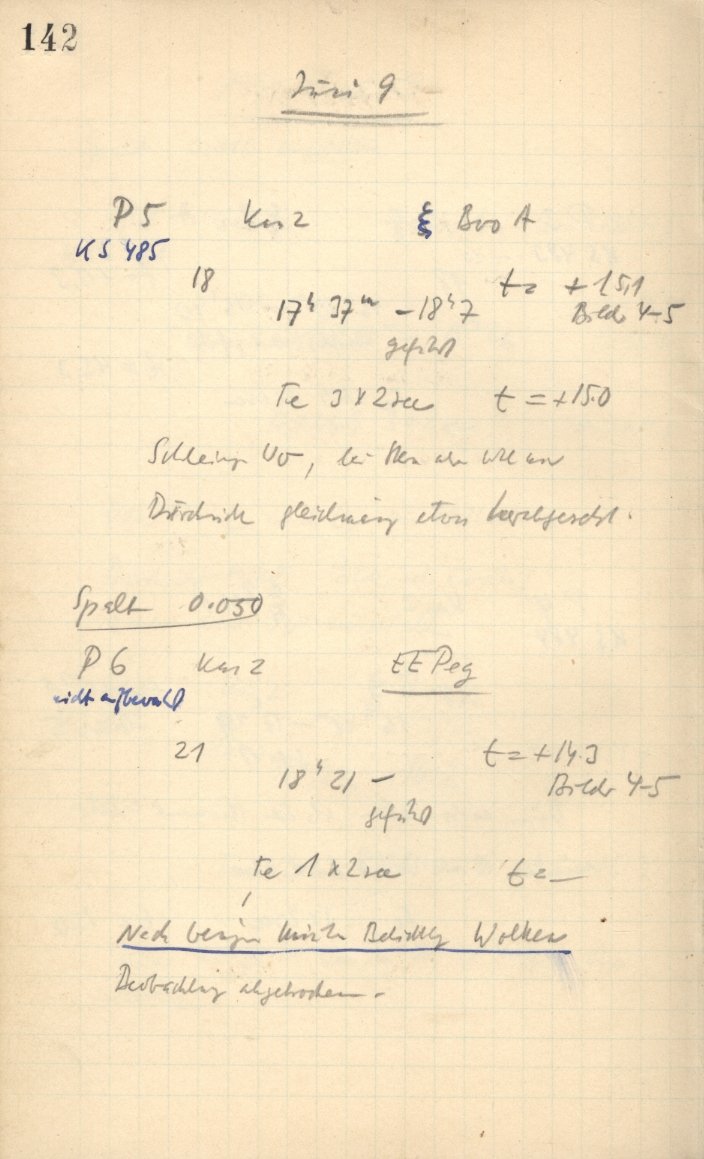 142
Juni 9
P5 Kas 2 ξ Boo A
KS 485
18 t = +15.1
17h 37m – 18h 7 Bilder 4–5
geführt
Fe 3 x 2 sec t = +15.0
Schleier vor, bei
gleichmäßig etwas herabgesetzt.
Spalt 0.030
P6 Kas 2 EE Peg
nicht aufbewahrt
21 t = +14.3
18h 21 – Bilder 4–5
geführt
Fe 1 x 2 sec t = —
Nach Wolken
Beobachtung abgebrochen.